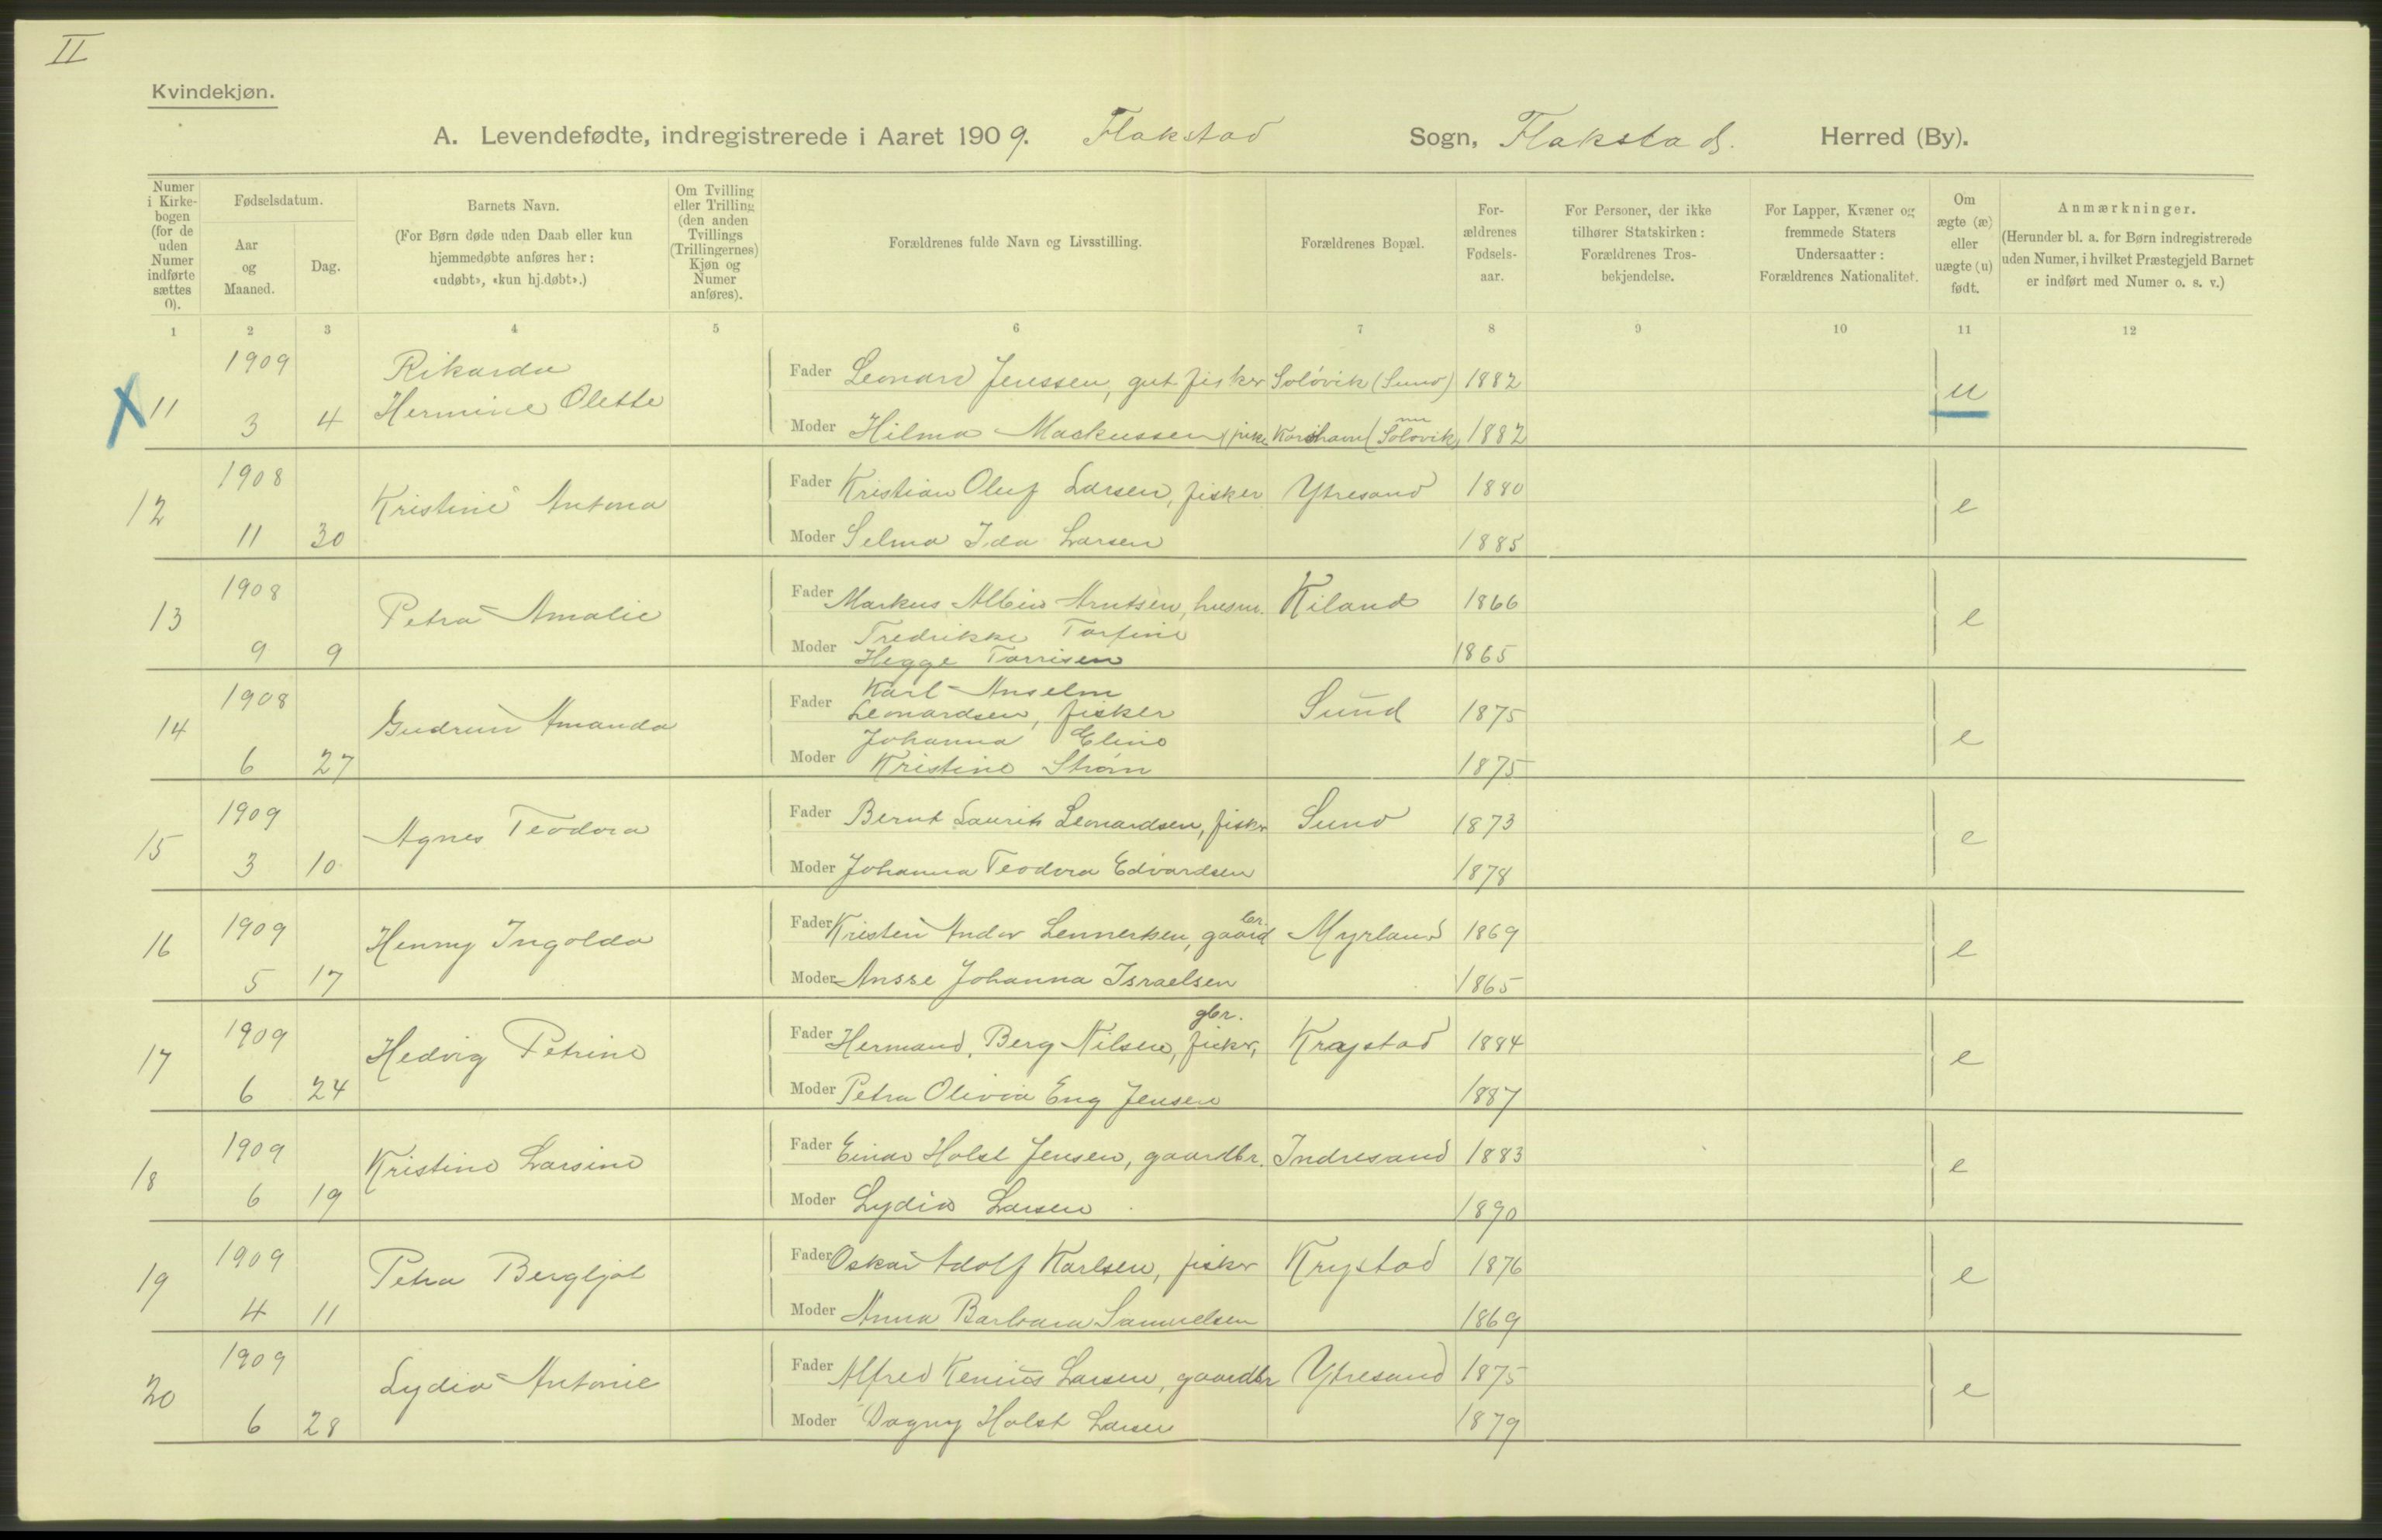 II
Kvindekjøn.
A. Levendefødte, indregistrerede i Aaret 1909. Flakstad Sogn, Flakstad. Herred (By).
Numer i Kirkebogen (for de uden Numer indførte sættes 0).
Fødselsdatum.
Aar og Maaned.
Dag.
Barnets Navn.
(For Børn døde uden Daab eller kun hjemmedøbte anføres her: «udøbt», «kun hj.døbt».)
Om Tvilling eller Trilling (den anden Tvillings (Trillingernes) Kjøn og Numer anføres).
Forældrenes fulde Navn og Livsstilling.
Forældrenes Bopæl.
Forældrenes Fødselsaar.
For Personer, der ikke tilhører Statskirken: Forældrenes Trosbekjendelse.
For Lapper, Kvæner og fremmede Staters Undersaatter: Forældrenes Nationalitet.
Om ægte (æ) eller uægte (u) født.
Anmærkninger.
(Herunder bl. a. for Børn indregistrerede uden Numer, i hvilket Præstegjeld Barnet er indført med Numer o. s. v.)
1 2 3 4 5 6 7 8 9 10 11 12
X 11 1909 3 4 Rikarda Hermine Olette u
Fader Leonard Jenssen, gut fisker Soløvik (Sund) 1882
Moder Hilma Markussen, pike (nu Soløvik) 1882
12 1908 11 30 Kristine Antona e
Fader Kristian Oluf Larsen, fisker Ytresand 1880
Moder Selma Ida Larsen 1885
13 1908 9 9 Petra Amalie e
Fader Markus Albin Arntsen, husm. Kiland 1866
Moder Fredrikke Torfine
Hegge Torrisen 1865
14 1908 6 27 Gudrun Amanda e
Fader Karl Anselm
Leonardsen, fisker Sund 1875
Moder Johanna Eline
Kristine Strøm 1875
15 1909 3 10 Agnes Teodora e
Fader Bernt Laurits Leonardsen, fisker Sund 1873
Moder Johanna Teodora Edvardsen 1878
16 1909 5 17 Henny Ingolda e
Fader Kristen Andor Lennertsen, gaardbr. Myrland 1869
Moder Ansse Johanna Israelsen 1865
17 1909 6 24 Hedvig Petrine e
Fader Hermand Berg Nilsen, fisker, gbr. Krystad 1884
Moder Petra Olivia Eng Jensen 1887
18 1909 6 19 Kristine Larsine e
Fader Einar Holst Jensen, gaardbr. Indresand 1883
Moder Lydia Larsen 1890
19 1909 4 11 Petra Bergljot e
Fader Oskar Adolf Karlsen, fisker Krystad 1876
Moder Anna Barbara Samuelsen 1869
20 1909 6 28 Lydia Antonie e
Fader Alfred Kenius Larsen, gaardbr Ytresand 1875
Moder Dagny Holst Larsen 1879